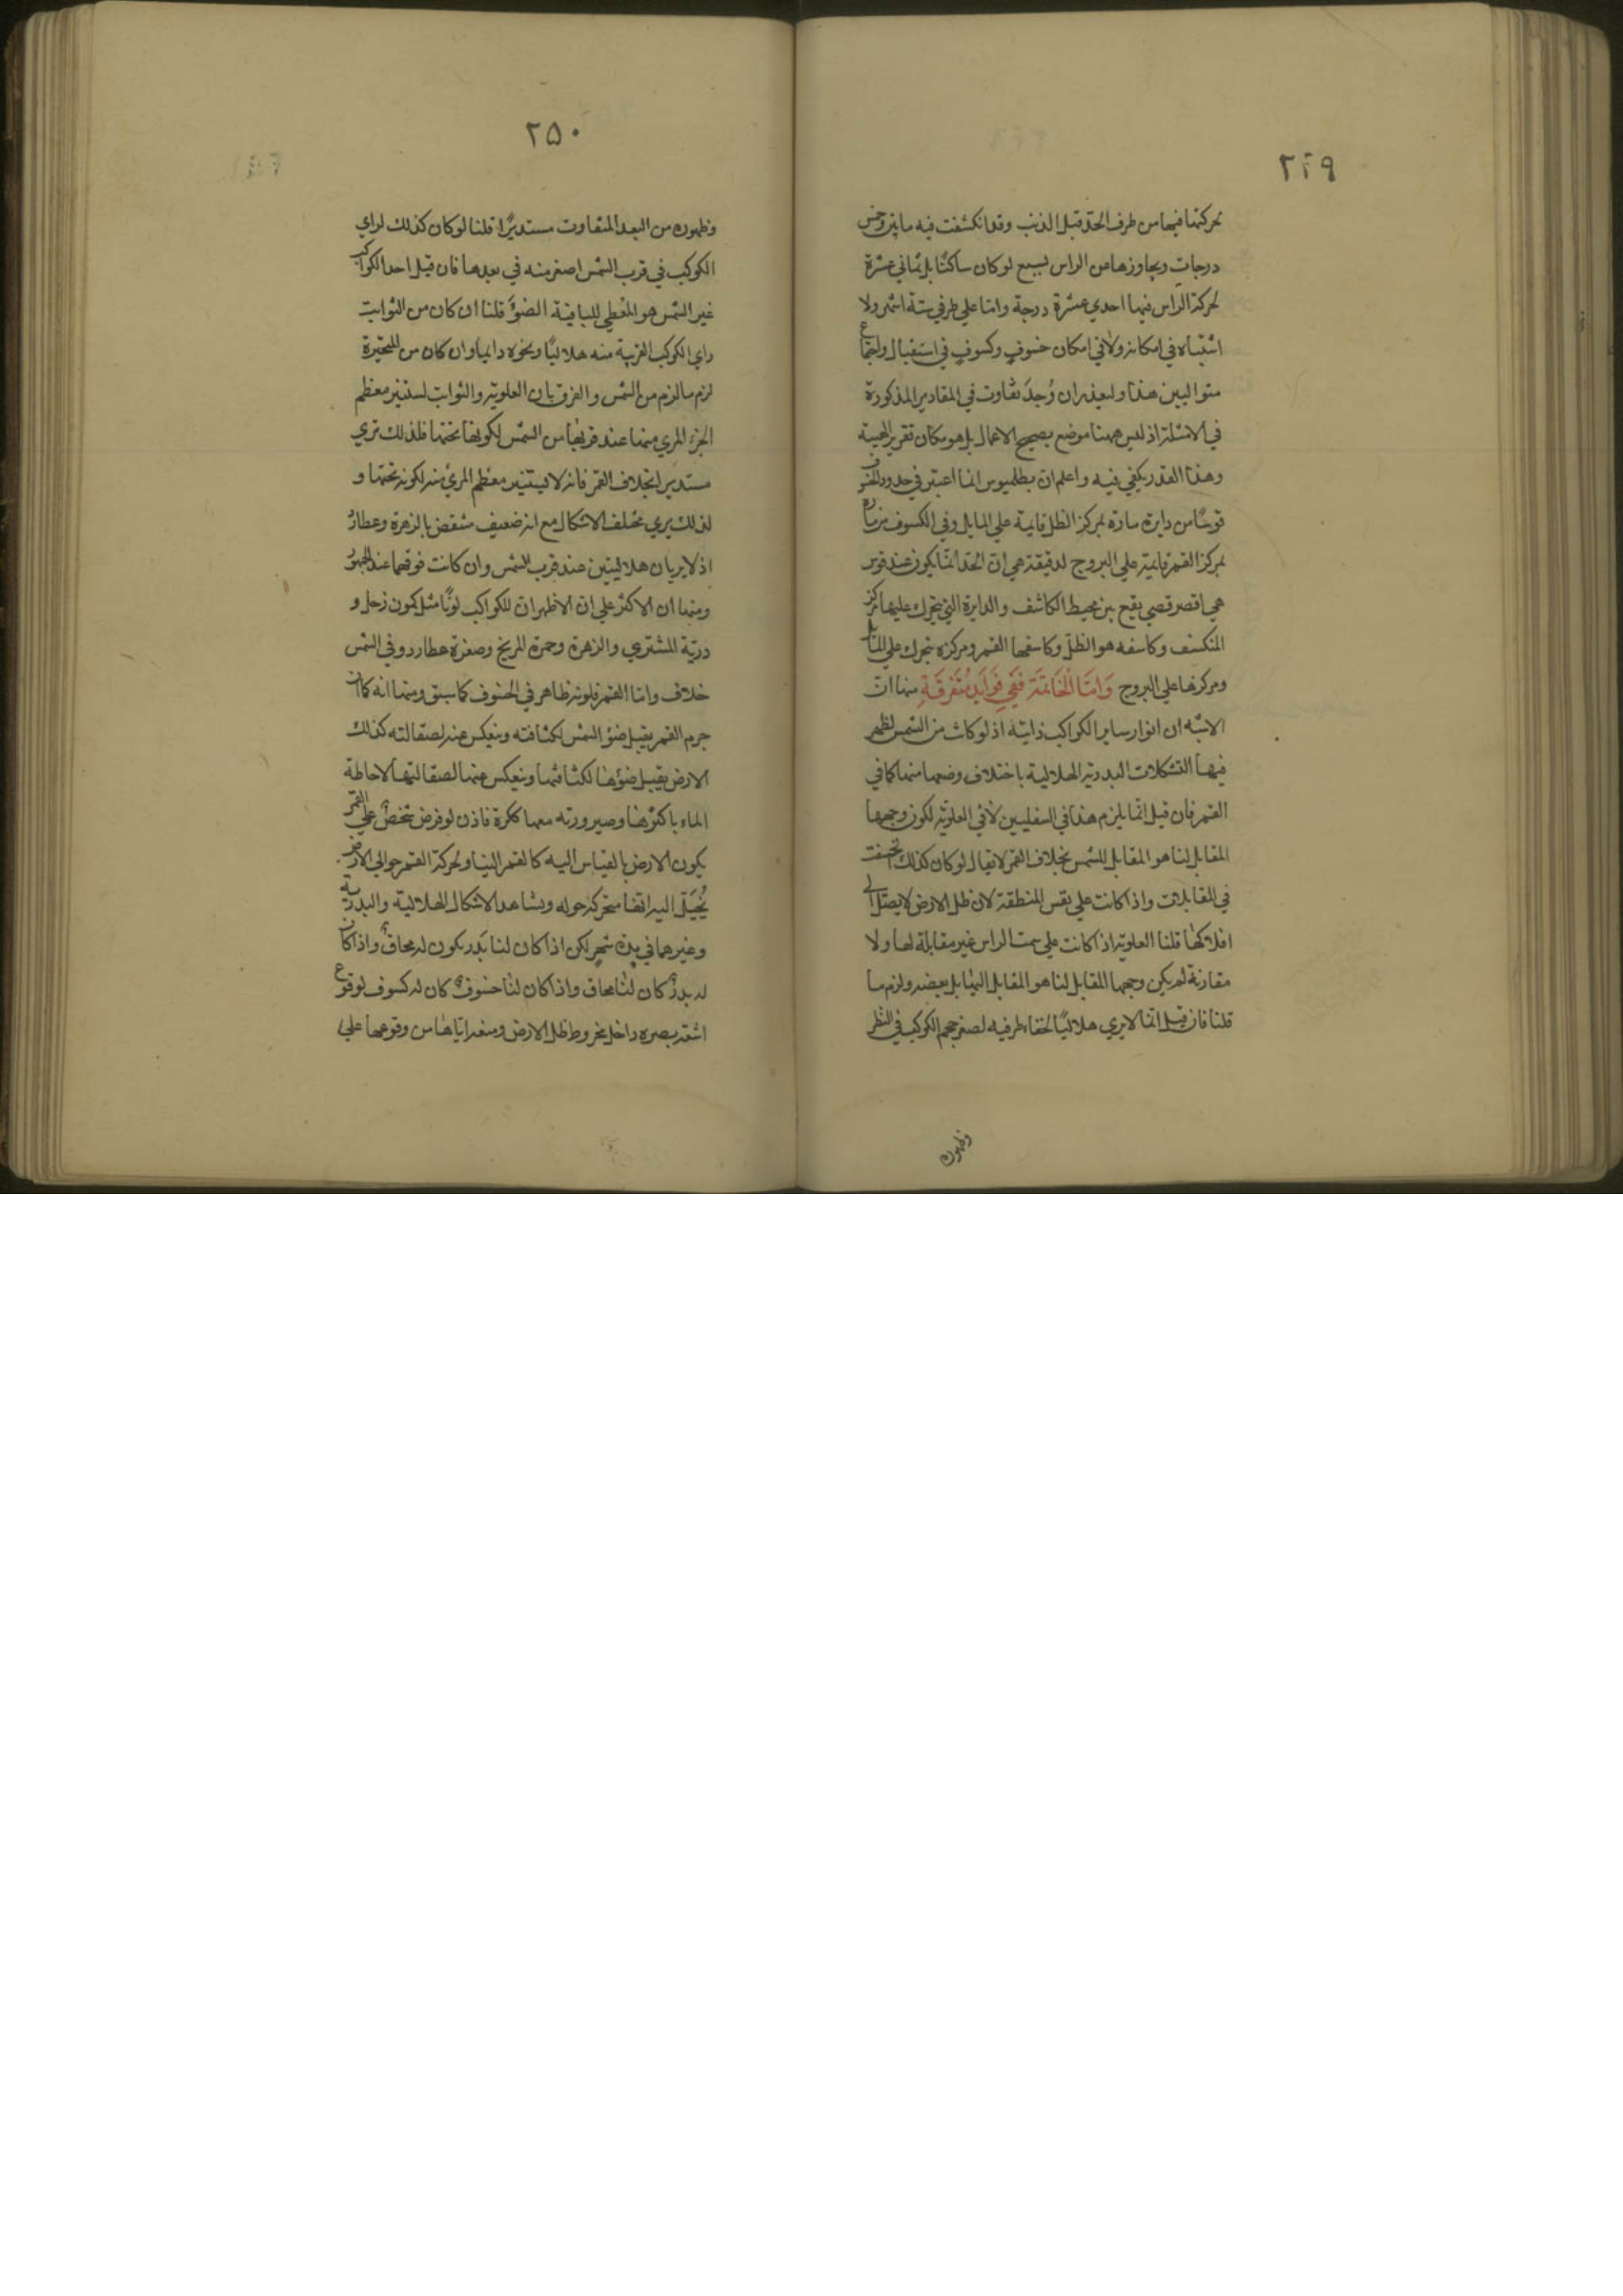 ٢٤٩
لحركتها فيها من طرف الحد قبل الذنب وقد انكشفت فيه مايتين وخمس
درجات ويجاوزها من الراس لسبع لو كان ساكنًا بل ثماني عشرة
لحركة الراس فيها احدي عشرة درجة واما علي طرفي ستة اشهر ولا
اشتباه في امكانه ولا في امكان خسوفٍ وكسوفٍ في استقبال واجتماع
متواليين هذا وليعذر ان وُجدَ تفاوت في المقادير المذكورة
في الامثلة اذ ليس ههنا موضع تصحيح الاعمال بل هو مكان تقرير الهيئة
وهذا القدر يكفي فيه واعلم ان بطلميوس انما اعتبر في حدود الخسوف
قوسًا من دايرة مارة بمركز الظل قايمة علي المايل وفي الكسوف من مارة
بمركز القمر قايمة علي البروج لدقيقة هي ان الحد انما يكون عند قوس
هي اقصر قسي يقع بين محيط الكاشف والدايرة التي يتحرك عليها مركز
المنكسف وكاسفه هو الظل وكاسفها القمر ومركزه يتحرك علي المايل
ومركزها علي البروج وَاَمَّا الْخَاتمَة فَفي فَوَايد مُتَفَرّقَةٍ منها ان
الاشبه ان انوار ساير الكواكب ذاتية اذ لو كانت من الشمس لظهر
فيها التشكلات البدرية الهلالية باختلاف وضعها منها كما في
القمر فان قيل انما يلزم هذا في السفليين لا في العلوية لكون وجهها
المقابل لنا هو المقابل للشمس بخلاف القمر لا يقال لو كان كذلك انخسفت
في المقابلات واذا كانت علي نفس المنطقة لان ظل الارض لا يصل الي
افلاكها قلنا العلوية اذا كانت علي سمت الراس غير مقابلة لها ولا
مقارنة لم يكن وجهها المقابل لنا هو المقابل اليها بل بعضه ولزم ما
قلنا فان قيل انما لا يري هلاليًا لخفاء طرفيه لصغر حجم الكوكب في النظر
وظهوره
٢٥٠
وظهوره من البعد المتفاوت مستديرًا قلنا لو كان كذلك لراي
الكوكب في قرب الشمس اصغر منه في بعدها فان قيل احد الكواكب
غير الشمس هو المعطي للباقية الضوَ قلنا ان كان من الثوابت
راي الكوكب القريبة منه هلاليًا ونحوه دايما وان كان من المتحيرة
لزم ما لزم من الشمس والفرق بان العلوية والثوابت يستنير معظم
الجزء المري منها عند قربها من الشمس لكونها تحتها فلذلك تري
مستديرا بخلاف القمر فانه لا يستنير معظم المري منه لكونه تحتها و
لذلك يري مختلف الاشكال مع انه ضعيف منتقض بالزهرة وعطارد
اذ لا يريان هلاليتين عند قرب الشمس وان كانت فوقهما عند الجمهور
ومنها ان الاكثر علي ان الاظهر ان للكواكب لونًا مثل كمون زحل و
درية المشتري والزهرة وحمرة المريخ وصفرة عطارد وفي الشمس
خلاف واما القمر فلونه ظاهر في الخسوف كما سبق ومنها انه كما ان
جرم القمر يقبل ضؤ الشمس لكثافته وينعكس عنه لصقالته كذلك
الارض يقبل ضؤها لكثافتها وينعكس عنها لصقالتها لاحاطة
الماء باكثرها وصيرورته معها ككرة فاذن لو فرض شخصٌ علي القمر
يكون الارض بالقياس اليه كالقمر الينا ولحركة القمر حوالي الارض
يُخيَّل اليه انها متحركة حوله ويشاهد الاشكال الهلالية والبدرية
وغيرهما في مدة شهرٍ لكن اذا كان لنا بَدر يكون له محاقٌ واذا كان
له بدرٌ كان لنا محاق واذا كان لنا خسوفٌ كان له كسوف لوقوع
اشعة بصره داخل مخروط ظل الارض ومنعه اياها من وقوعها علي